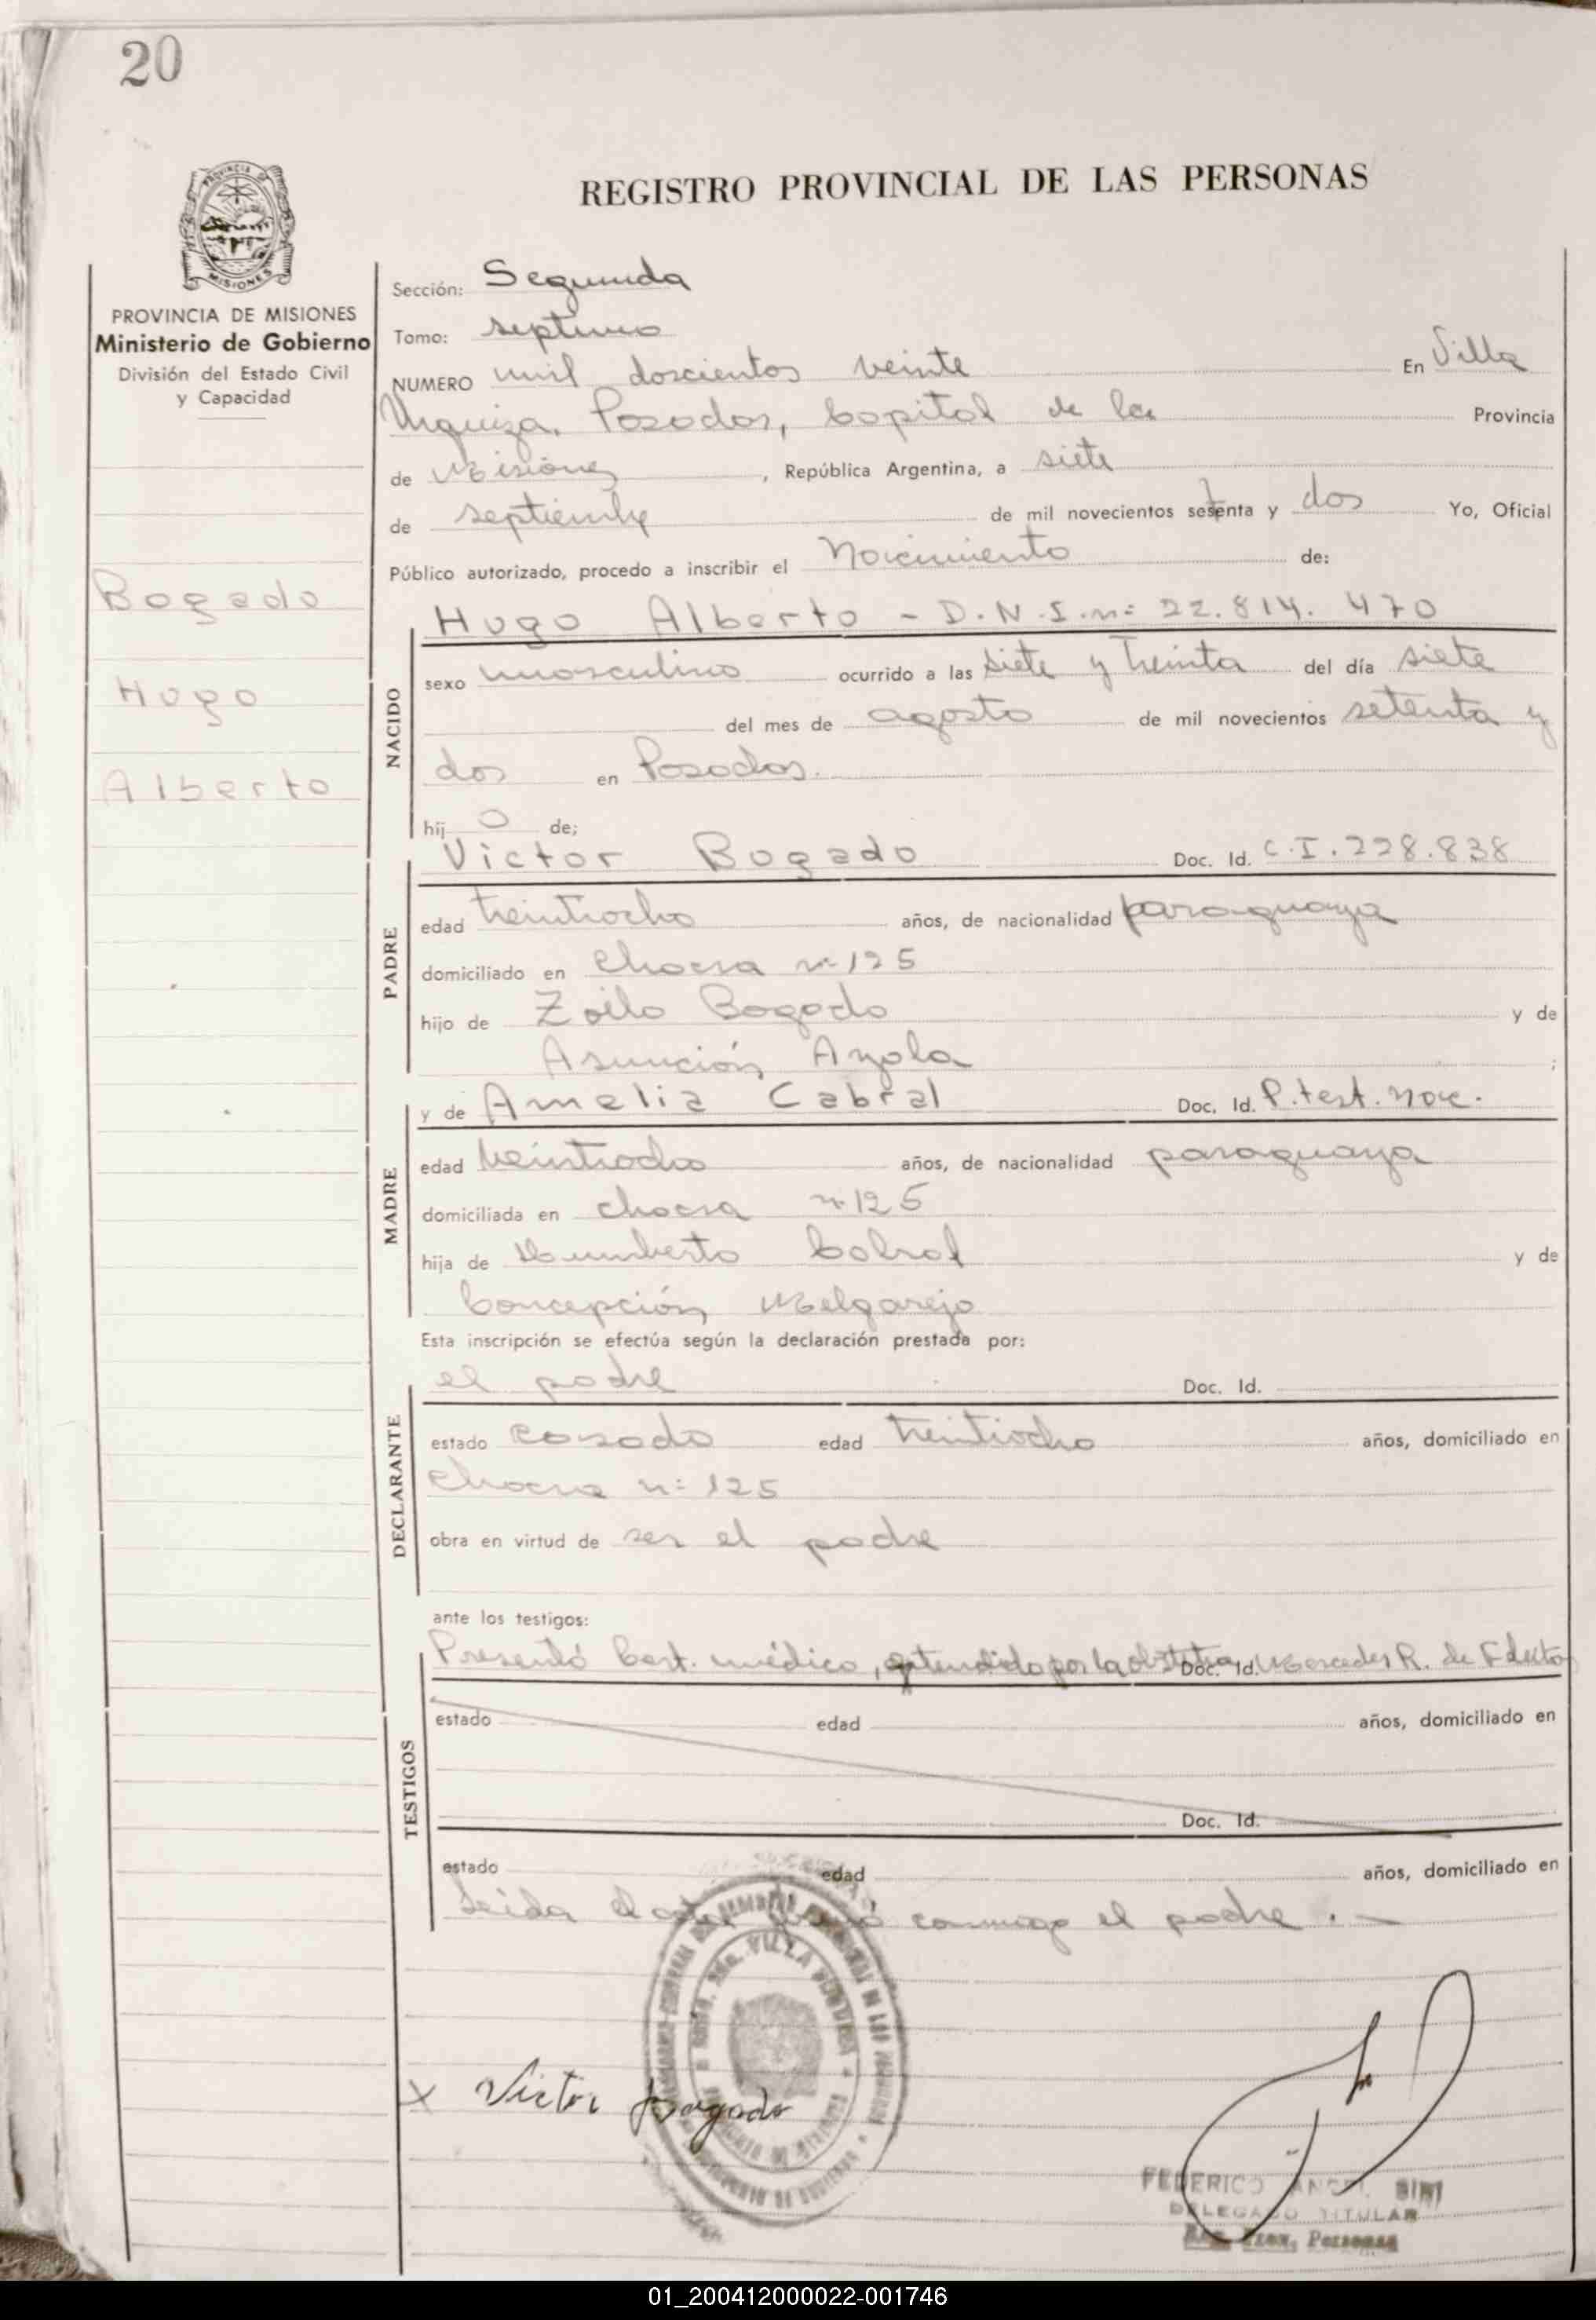 20
PROVINCIA DE MISIONES
Ministerio de Gobierno
División del Estado Civil
y Capacidad
Bogado
Hugo
Alberto
REGISTRO PROVINCIAL DE LAS PERSONAS
Sección: Segunda
Tomo: septimo
NUMERO mil doscientos veinte En Villa
Urquiza, Posadas, Capital de la Provincia
de Misiones, República Argentina, a siete
de septiembre de mil novecientos setenta y dos Yo, Oficial
Público autorizado, procedo a inscribir el Nacimiento de:
Hugo Alberto - D.N.I.n: 22.814.470
NACIDO
sexo masculino ocurrido a las siete y treinta del día siete
del mes de agosto de mil novecientos setenta y
dos en Posadas.
hij o de;
Victor Bogado Doc. Id. C.I.228.838
PADRE
edad treintiocho años, de nacionalidad paraguaya
domiciliado en Chacra n 125
hijo de Zoilo Bogado y de
Asunción Ayala ;
y de Amelia Cabral Doc. Id. P.test.nac.
MADRE
edad años, de nacionalidad paraguaya
domiciliada en chacra n 125
hija de Humberto Cabral y de
Concepción Melgarejo
Esta inscripción se efectúa según la declaración prestada por:
el padre Doc. Id.
DECLARANTE
estado casado edad treintiocho años, domiciliado en
Chacra n: 125
obra en virtud de ser el padre
ante los testigos:
Presentó Cert. médico, atendido por la obstetra Doc. Id. Mercedes R. de
TESTIGOS
estado edad años, domiciliado en
Doc. Id.
estado edad años, domiciliado en
Leida el acta firmó conmigo el padre . -
x Victor Bogado
FEDERICO ANGEL SIRI
DELEGADO TITULAR
Reg. Prov. Personas
01_200412000022-001746